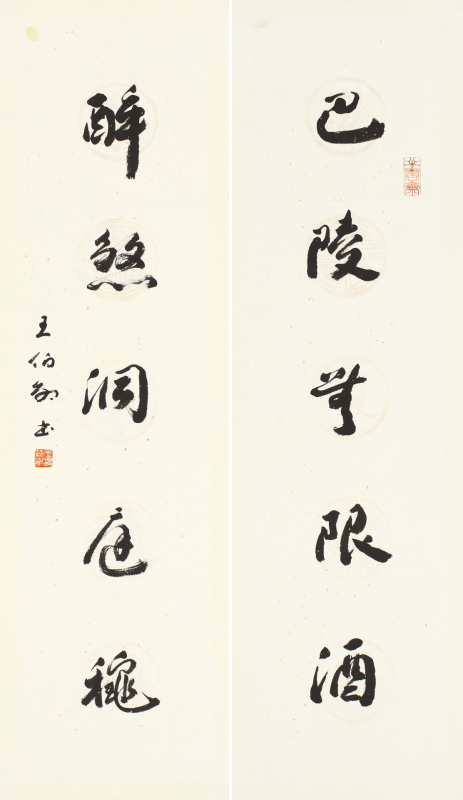 巴陵無限酒
醉煞洞庭龝
王伯敏书